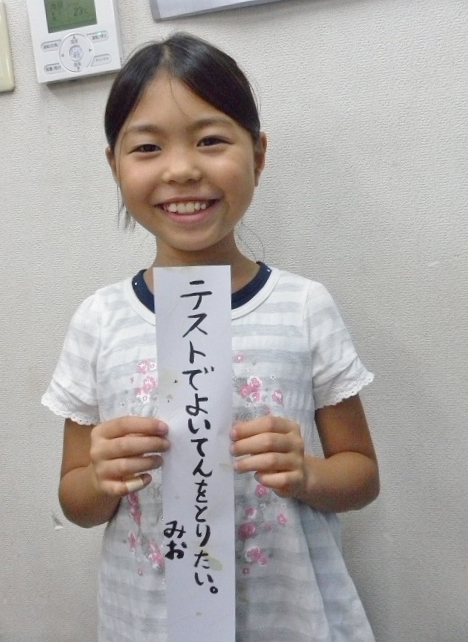 テストでよいてんをとりたい。
みお